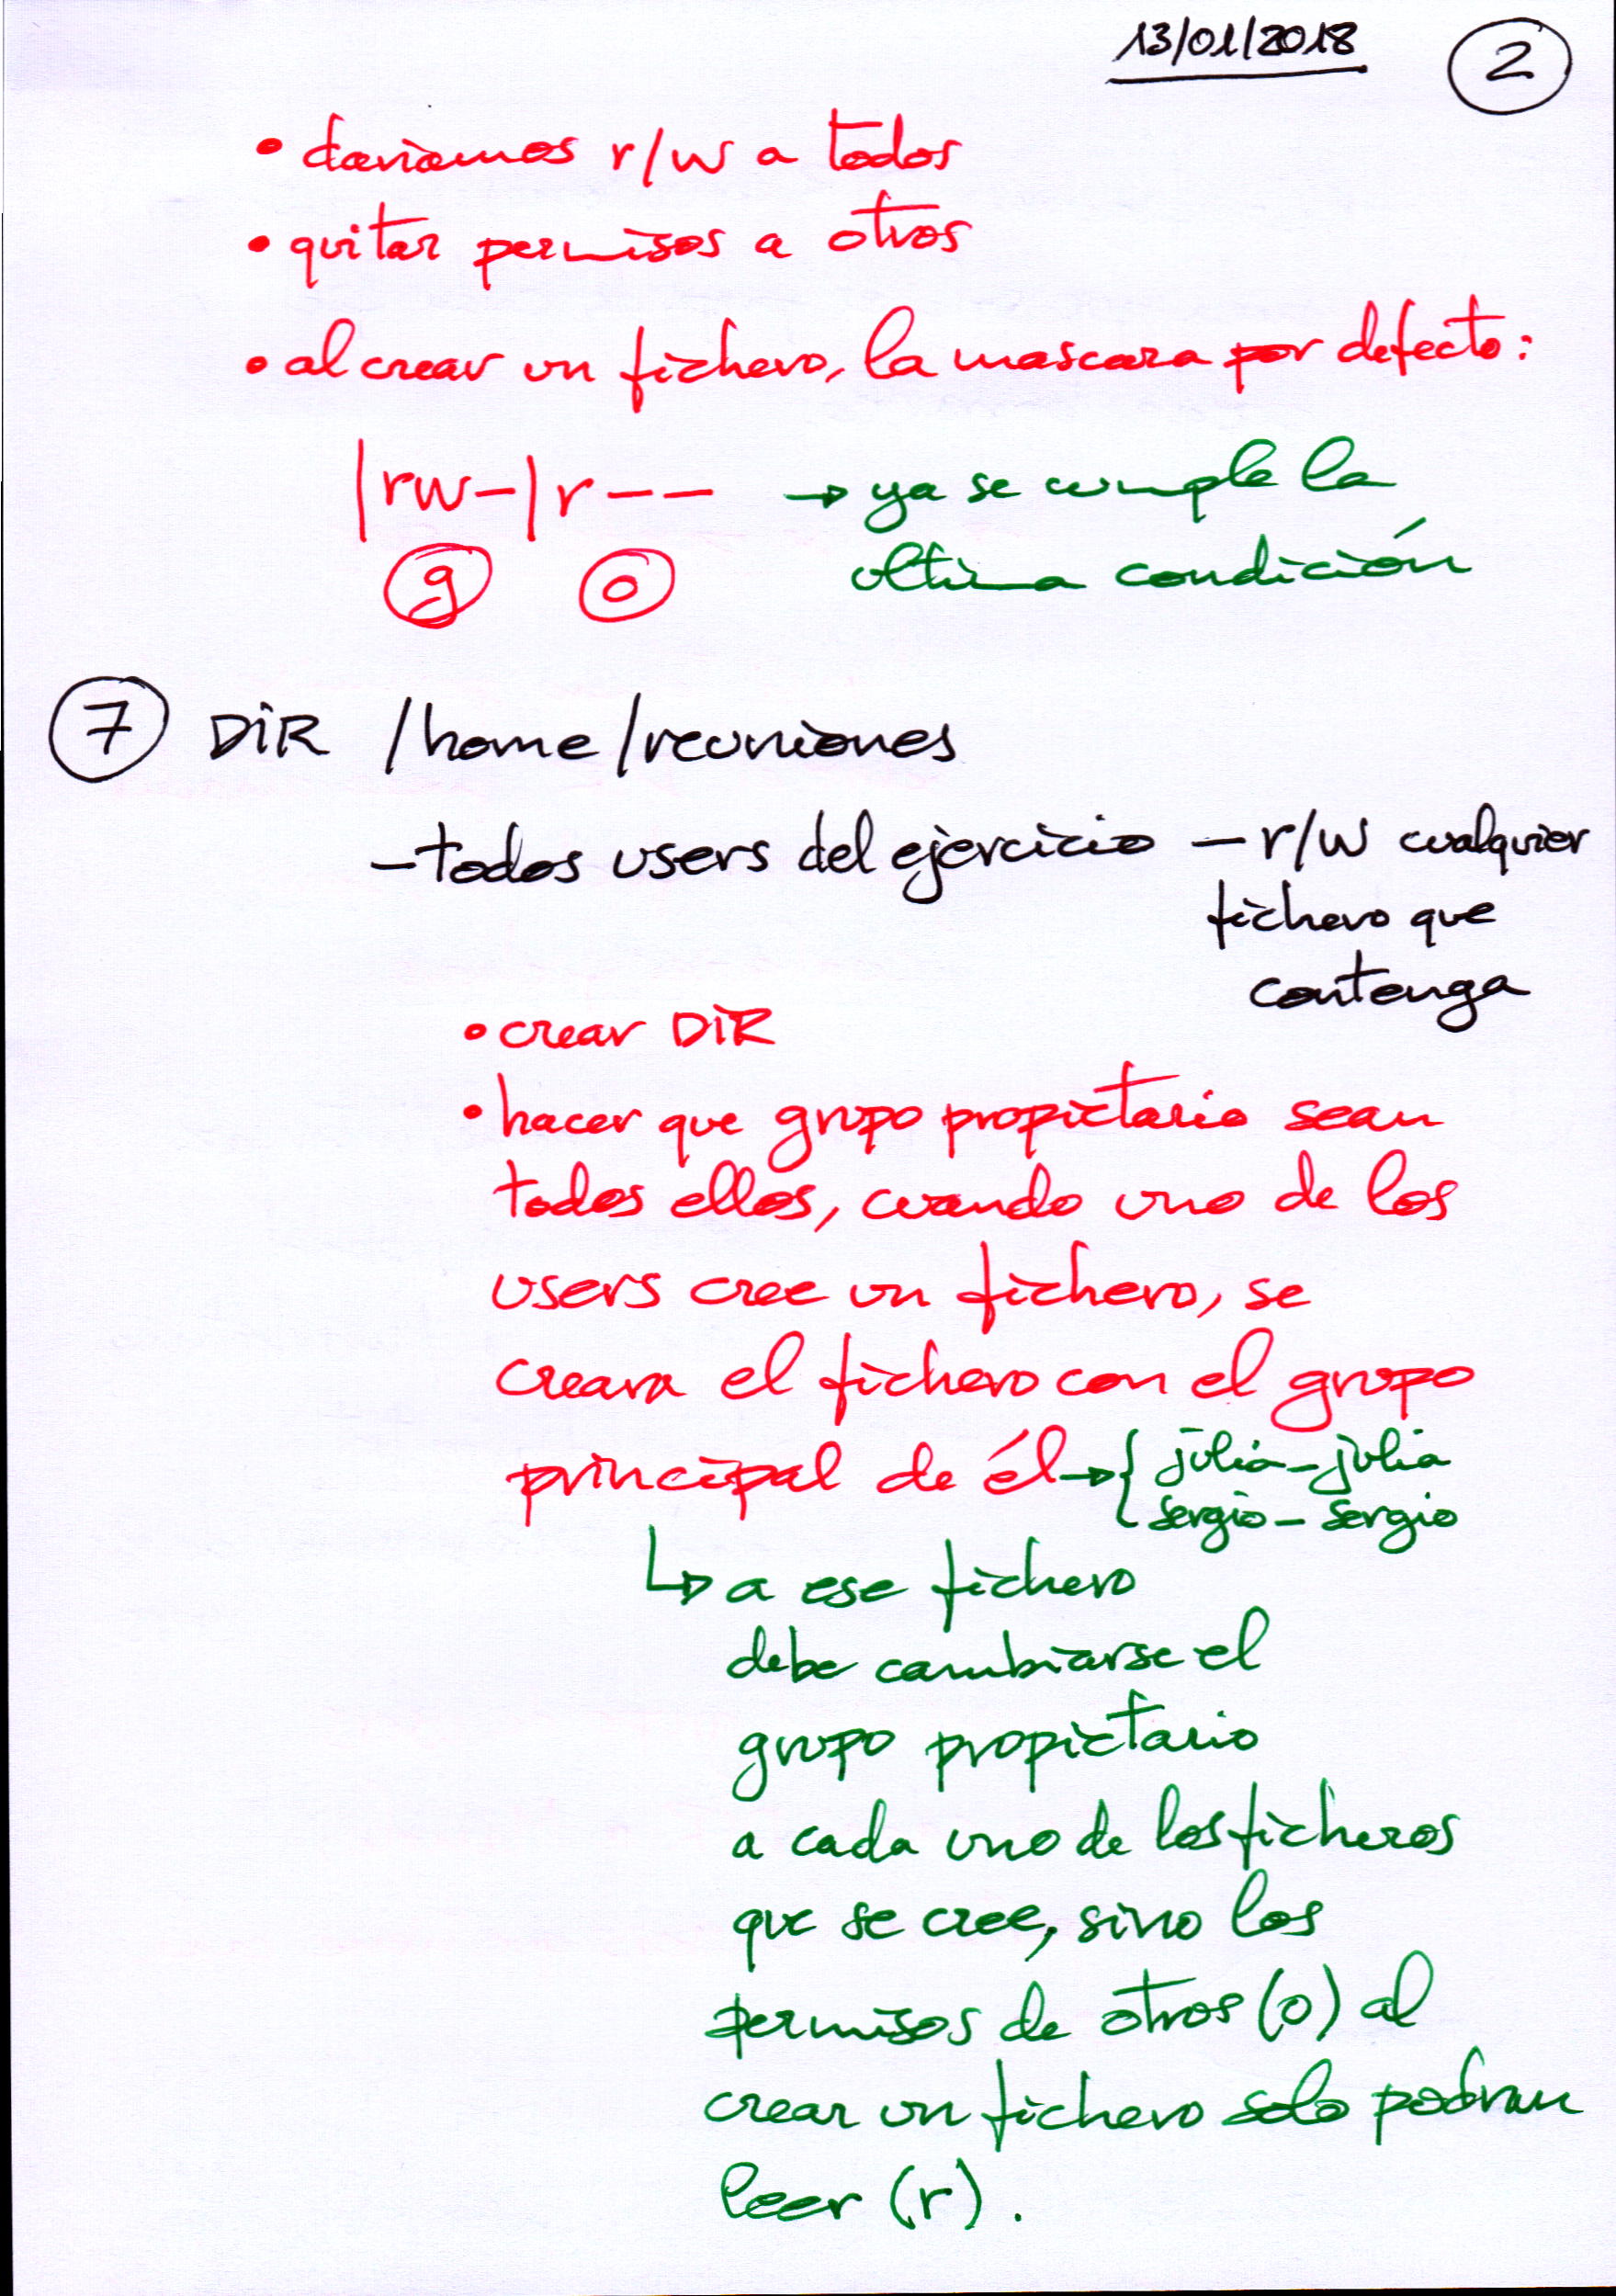 13/01/2018 2
• daríamos r/w a todos
• quitar permisos a otros
• al crear un fichero, la mascara por defecto:
|rw-|r-- → ya se cumple la
g o ultima condición
7 DIR /home/reuniones
- todos users del ejercicio - r/w cualquier
fichero que
contenga
• crear DIR
• hacer que grupo propietario sean
todos ellos, cuando uno de los
users cree un fichero, se
creara el fichero con el grupo
principal de él → { julia - julia
sergio - sergio
↳ a ese fichero
debe cambiarse el
grupo propietario
a cada uno de los ficheros
que se cree, sino los
permisos de otros (o) al
crear un fichero solo podran
leer (r).